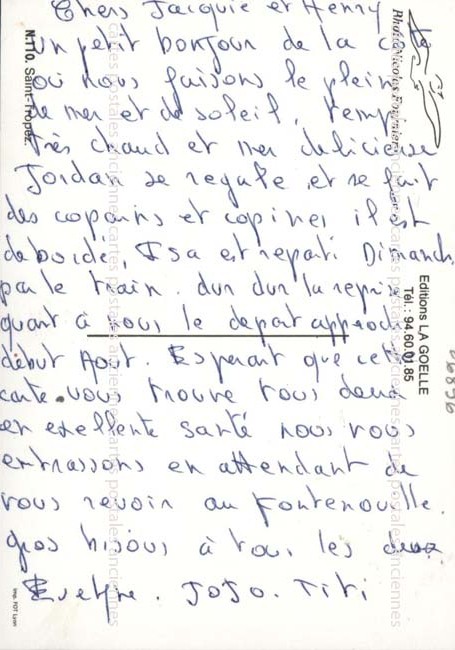 Chers Jacquie et Henry
un petit bonjour de la côte
où nous faisons le plein
de mer et de soleil, temps
très chaud et mer delicieuse
Jordan se regale et se fait
des copains et copines il est
debordé, Isa est reparti Dimanche
par le train. dur dur la reprise
quant à vous le depart approche
début Août. Esperant que cette
carte vous trouve tous deux
en exellente santé nous vous
embrassons en attendant de
vous revoir au Fontenouille.
gros bisous à tous les deux
Evelyne. JOJO. Titi
N.110. Saint-Tropez.
Photo Nicolas Fournier
Editions LA GOELLE
Tél. : 94.60.01.85
Imp. POT Lyon
cartes postales anciennes